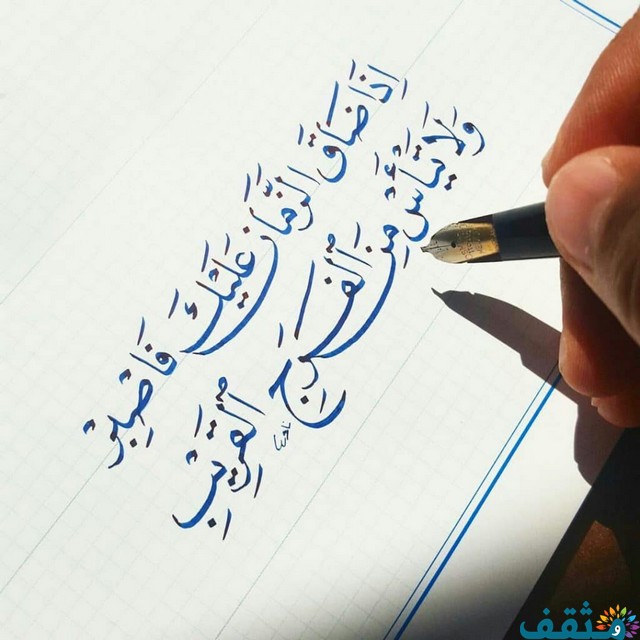 إِذَا ضَاقَ الزَّمَانُ عَلَيْكَ فَاصْبِرْ
وَلَا تَيْأَسْ مِنَ الْفَرَجِ الْقَرِيبِ
مثقف